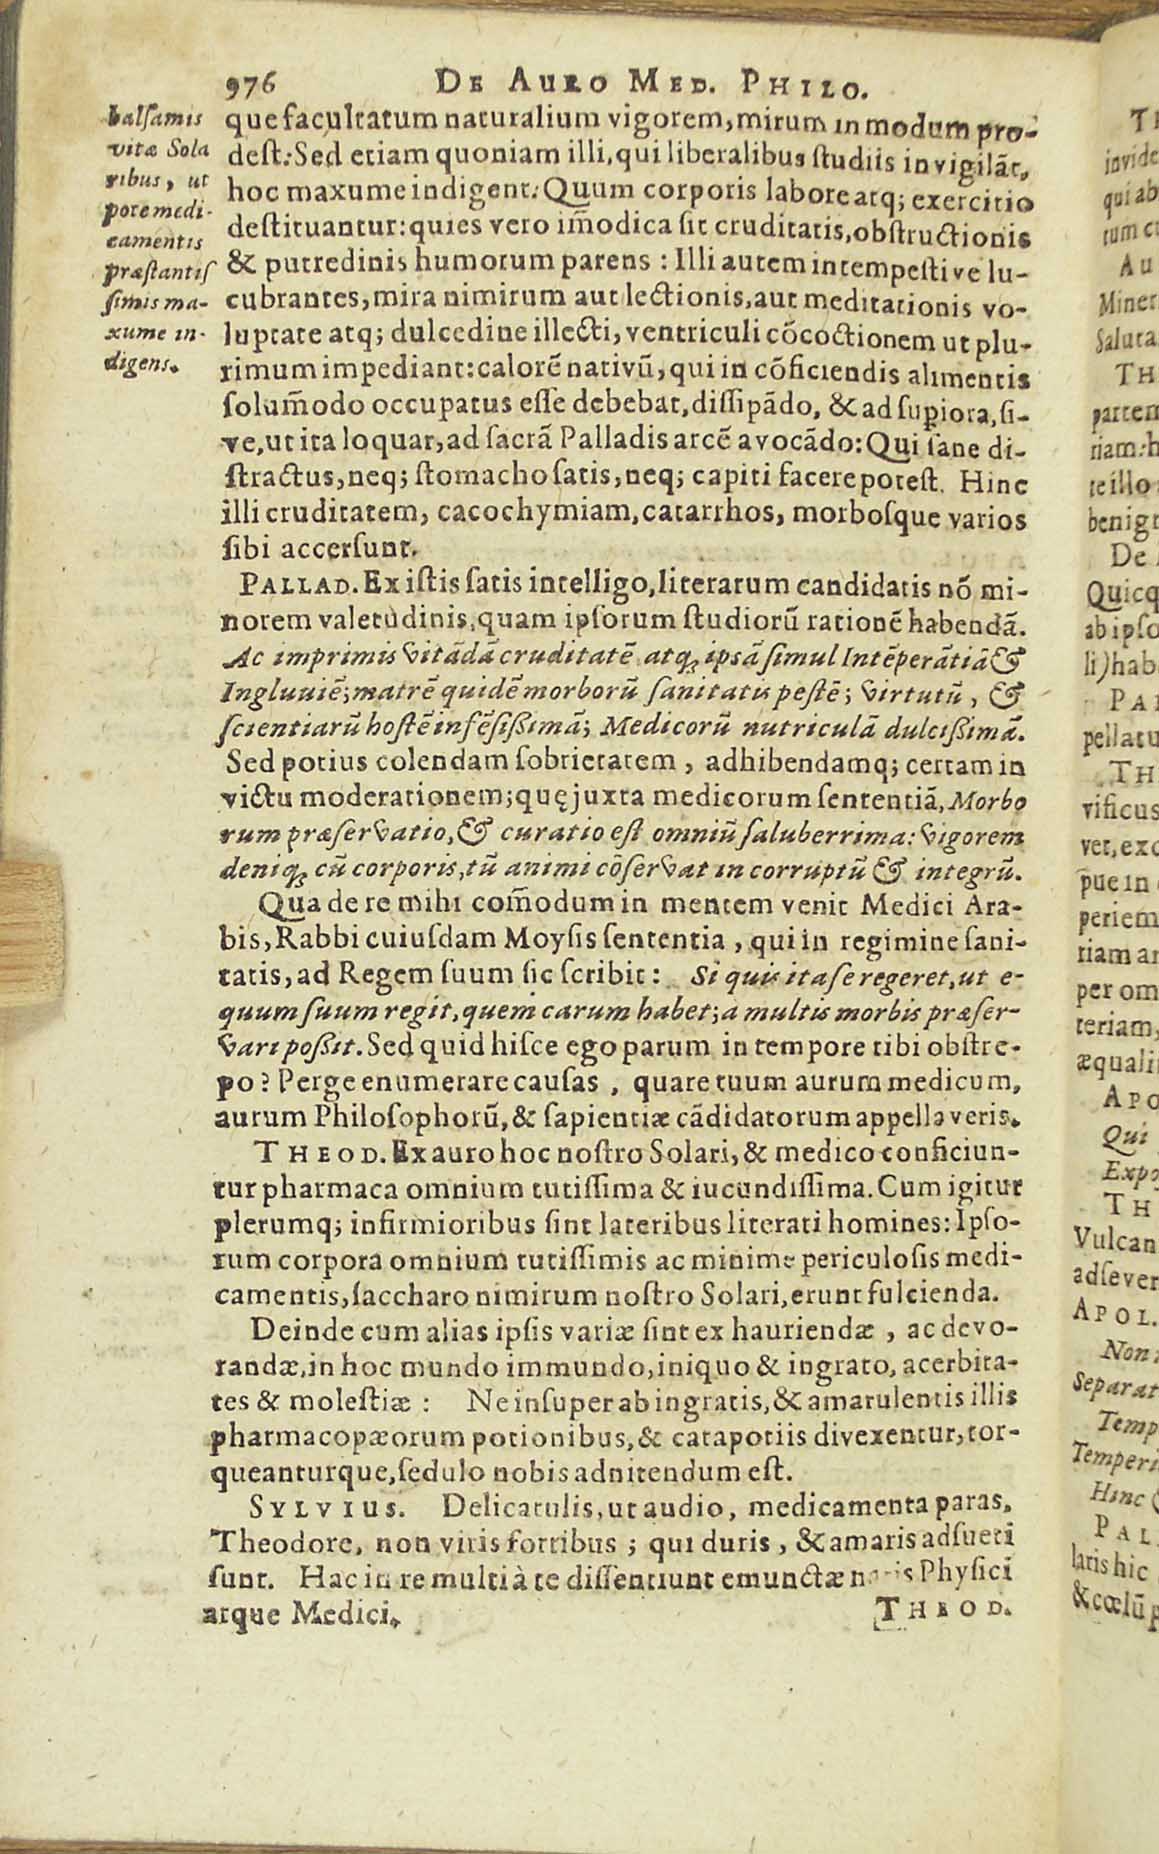 976 DE AURO MED. PHILO.
balſamis
vitæ Sola
ribus, ut
pote medi-
camentis
præſtantiſ
ſimis ma-
xume in-
digens.
que facultatum naturalium vigorem, mirum in modum pro-
deſt: Sed etiam quoniam illi, qui liberalibus ſtudiis invigilãt,
hoc maxume indigent: Quum corporis labore atq; exercitio
deſtituantur: quies vero im̃odica ſit cruditatis, obſtructionis
& putredinis humorum parens : Illi autem intempeſtive lu-
cubrantes, mira nimirum aut lectionis, aut meditationis vo-
luptate atq; dulcedine illecti, ventriculi cõcoctionem ut plu-
rimum impediant: calorẽ nativũ, qui in cõficiendis alimentis
ſolum̃odo occupatus eſſe debebat, diſſipãdo, & ad supiora, ſi-
ve, ut ita loquar, ad ſacrã Palladis arcẽ avocãdo: Qui ſane di-
ſtractus, neq; ſtomacho ſatis, neq; capiti facere poteſt. Hinc
illi cruditatem, cacochymiam, catarrhos, morboſque varios
ſibi accerſunt.
PALLAD. Ex iſtis ſatis intelligo, literarum candidatis nõ mi-
norem valetudinis, quam ipſorum ſtudiorũ rationẽ habendã.
Ac imprimis vitãdã cruditatẽ atq; ipsã ſimul Intẽperãtiã &
Ingluuiẽ; matrẽ quidẽ morborũ ſanitatis peſtẽ; virtutũ, &
ſcientiarũ hoſtẽ infẽſißimã; Medicorũ nutriculã dulcißimã.
Sed potius colendam ſobrietatem, adhibendamq; certam in
victu moderationem; quę juxta medicorum ſententiã, Morbo
rum præſervatio, & curatio eſt omniũ ſaluberrima: vigorem
deniq; cũ corporis, tũ animi cõſervat incorruptũ & integrũ.
Qua de re mihi com̃odum in mentem venit Medici Ara-
bis, Rabbi cuiuſdam Moyſis ſententia, qui in regimine ſani-
tatis, ad Regem ſuum ſic ſcribit: Si quis ita ſe regeret, ut e-
quum ſuum regit, quem carum habet; a multis morbis præſer-
vari poßit. Sed quid hiſce ego parum in tempore tibi obſtre-
po? Perge enumerare cauſas, quare tuum aurum medicum,
aurum Philoſophorũ, & ſapientiæ cãdidatorum appellaveris.
THEOD. Ex auro hoc noſtro Solari, & medico conficiun-
tur pharmaca omnium tutiſſima & iucundiſſima. Cum igitur
plerumq; infirmioribus ſint lateribus literati homines: Ipſo-
rum corpora omnium tutiſſimis ac minime periculoſis medi-
camentis, ſaccharo nimirum noſtro Solari, erunt fulcienda.
Deinde cum alias ipſis variæ ſint exhauriendæ, ac devo-
randæ, in hoc mundo immundo, iniquo & ingrato, acerbita-
tes & moleſtiæ: Ne inſuper ab ingratis, & amarulentis illis
pharmacopæorum potionibus, & catapotiis divexentur, tor-
queanturque, ſedulo nobis adnitendum eſt.
SYLVIUS. Delicatulis, ut audio, medicamenta paras,
Theodore, non viris fortibus; qui duris, & amaris adſueti
ſunt. Hac in re multi à te diſſentiunt emunctæ naris Phyſici
atque Medici.
THEOD.